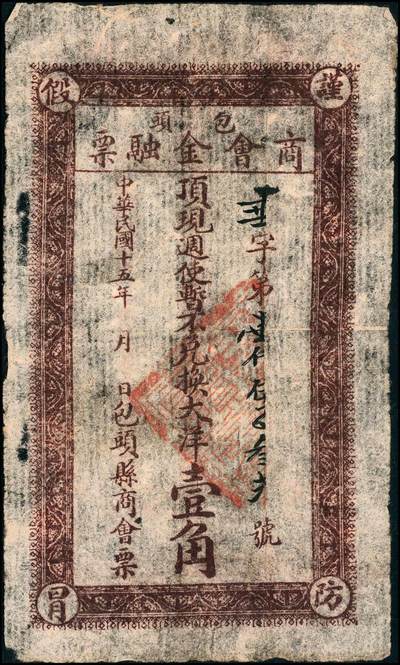 謹防假冒
包頭
商會金融票
字第號
頂現週使暫不兌換大洋壹角
中華民國十五年 月 日包頭縣商會票